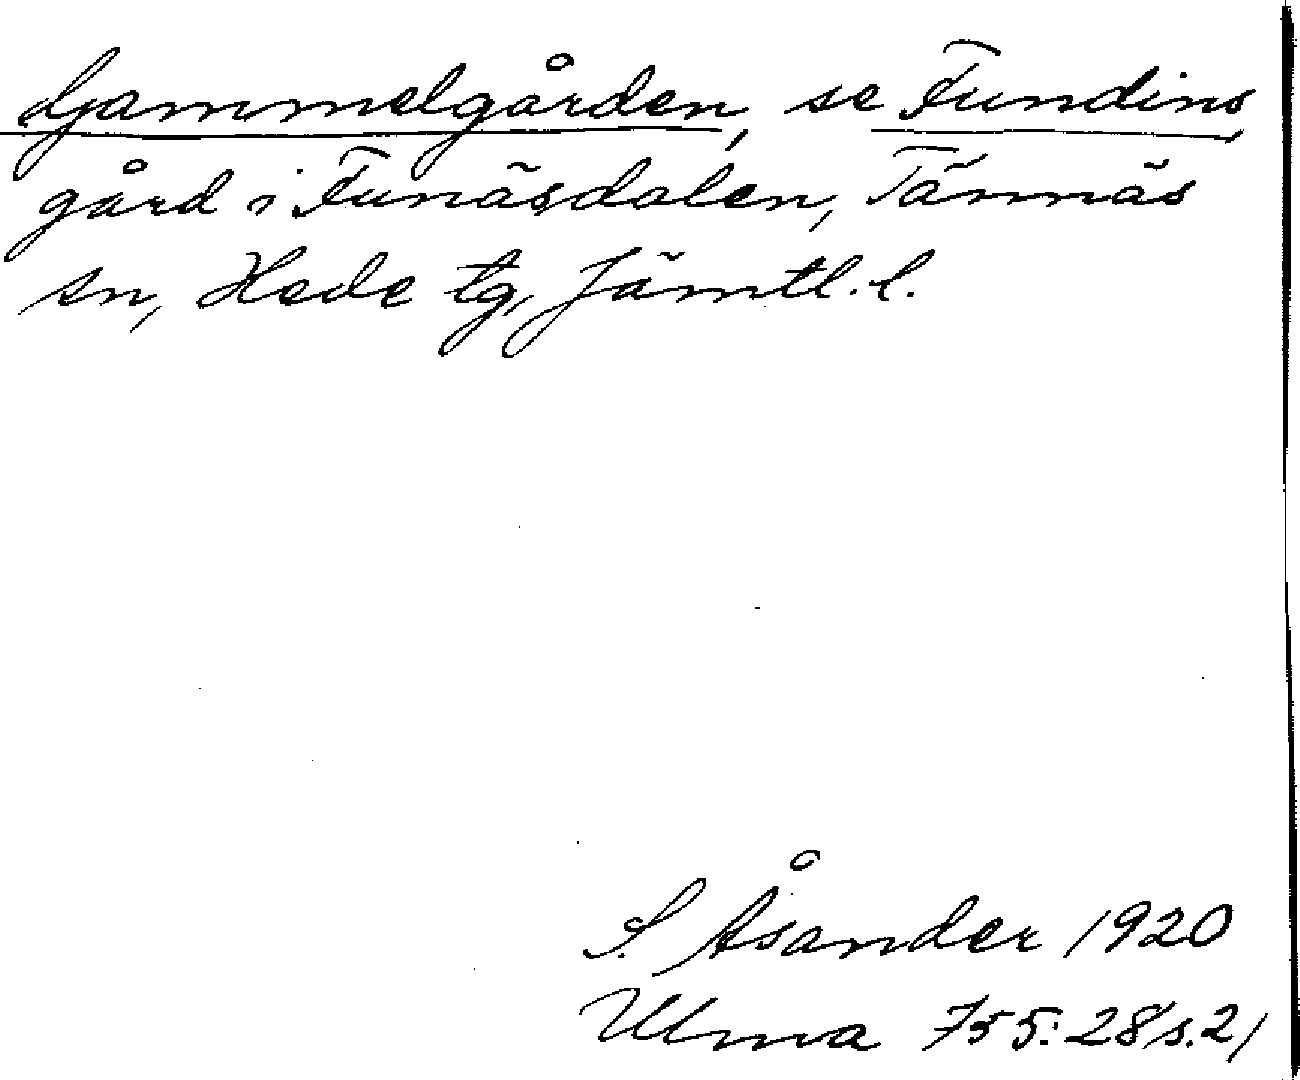 Gammelgården, se Fundins
gård i Funäsdalen, Tännäs
sn, Hede tg, Jämtl. l.
S. Åsander 1920
Ulma 755:28 s. 21